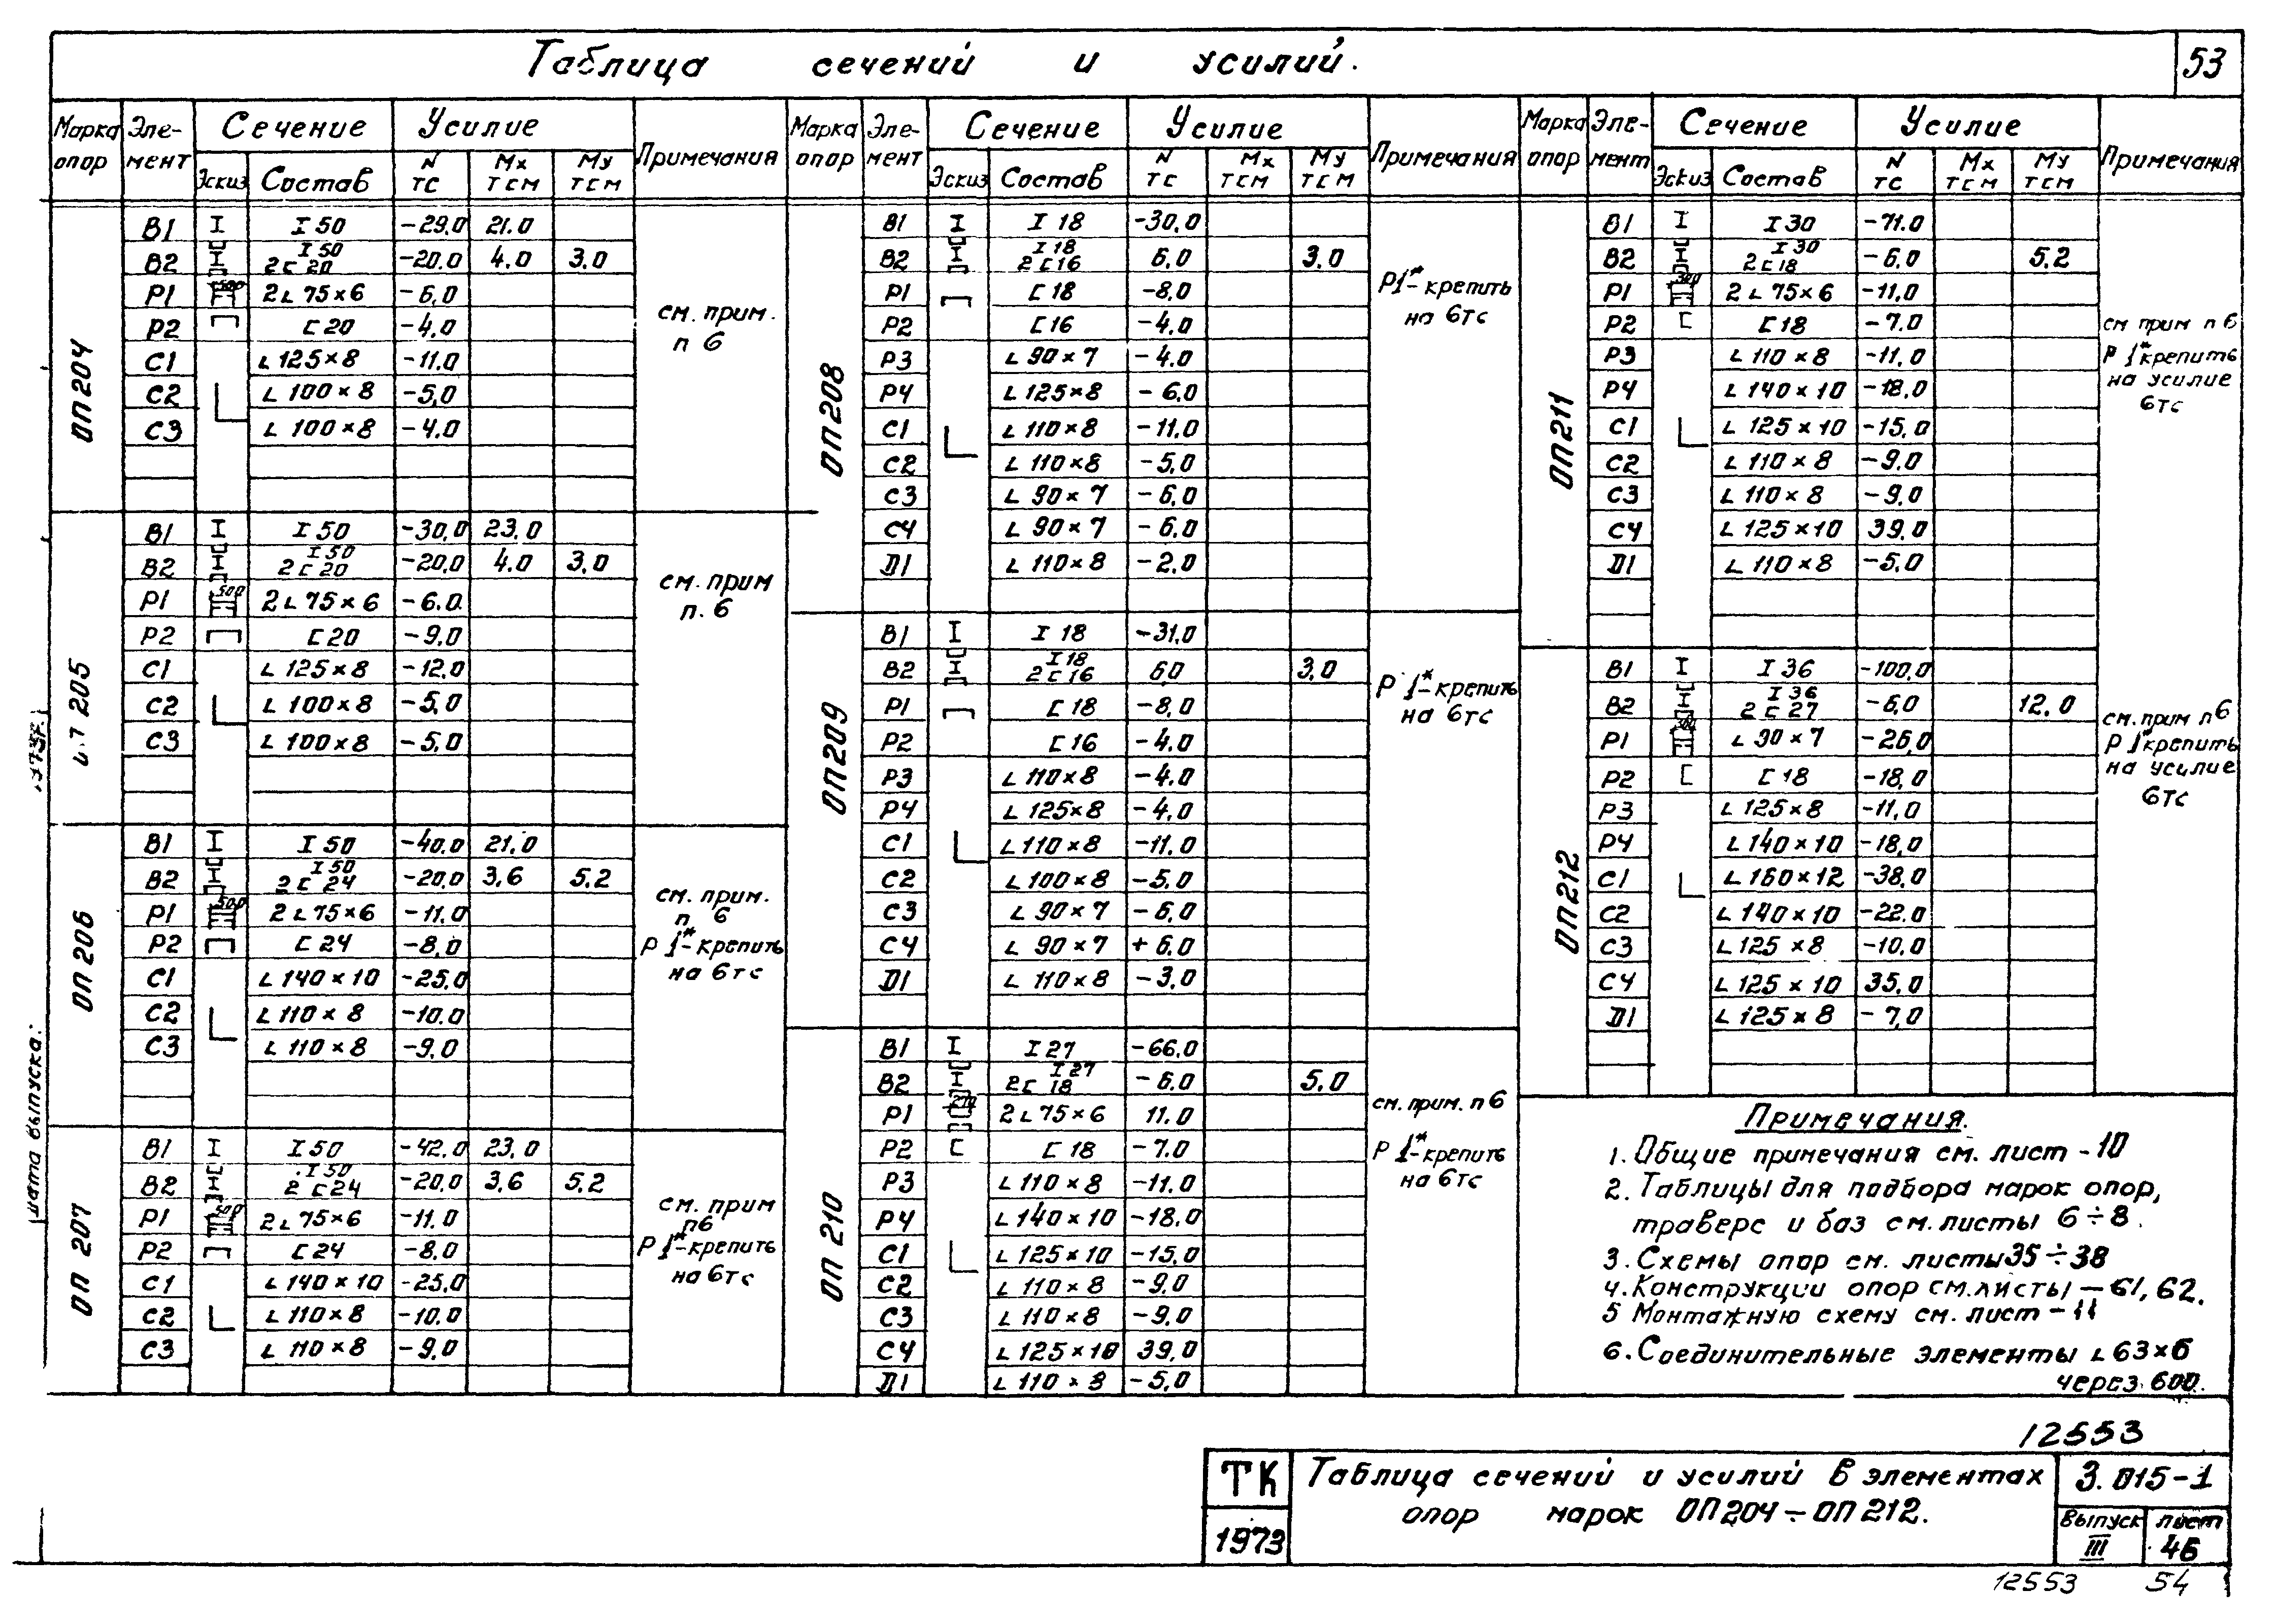 53
Таблица сечений и усилий.
Марка опор Эле-мент Сечение Усилие Примечания
Эскиз Состав N тс Mx тсм My тсм
ОП204
В1 I 50 -29,0 21.0
В2 I 50 2[20 -20.0 4.0 3.0
Р1 500 2L75×6 -6,0
Р2 [20 -4,0
С1 L125×8 -11,0
С2 L100×8 -5,0
С3 L100×8 -4,0
см. прим. п 6
205
В1 I 50 -30,0 23,0
В2 I 50 2[20 -20,0 4.0 3,0
Р1 500 2L75×6 -6.0
Р2 [20 -9,0
С1 L125×8 -12,0
С2 L100×8 -5,0
С3 L100×8 -5,0
см. прим п. 6
ОП 206
В1 I 50 -40,0 21,0
В2 I 50 2[24 -20,0 3,6 5.2
Р1 500 2L75×6 -11,0
Р2 [24 -8,0
С1 L140×10 -25,0
С2 L110×8 -10.0
С3 L110×8 -9,0
см. прим. п 6
Р1*-крепить на 6тс
ОП 207
В1 I 50 -42,0 23,0
В2 I 50 2[24 -20,0 3,6 5,2
Р1 500 2L75×6 -11.0
Р2 [24 -8,0
С1 L140×10 -25,0
С2 L110×8 -10,0
С3 L110×8 -9,0
см. прим п6
Р1*-крепить на 6тс
Марка опор Эле-мент Сечение Усилие Примечания
Эскиз Состав N тс Mx тсм My тсм
ОП208
В1 I 18 -30,0
В2 I 18 2[16 6,0 3,0
Р1 [18 -8,0
Р2 [16 -4,0
Р3 L90×7 -4.0
Р4 L125×8 -6.0
С1 L110×8 -11,0
С2 L110×8 -5,0
С3 L90×7 -6,0
С4 L90×7 -6,0
Д1 L110×8 -2.0
Р1*-крепить на 6тс
ОП209
В1 I 18 -31,0
В2 I 18 2[16 6,0 3,0
Р1 [18 -8,0
Р2 [16 -4.0
Р3 L110×8 -4.0
Р4 L125×8 -4.0
С1 L110×8 -11.0
С2 L100×8 -5.0
С3 L90×7 -6,0
С4 L90×7 +6,0
Д1 L110×8 -3,0
Р1*-крепить на 6тс
ОП 210
В1 I 27 -66.0
В2 I 27 2[18 -6.0 5.0
Р1 270 2L75×6 11.0
Р2 [18 -7.0
Р3 L110×8 -11.0
Р4 L140×10 -18.0
С1 L125×10 -15,0
С2 L110×8 -9,0
С3 L110×8 -9,0
С4 L125×10 39,0
Д1 L110×8 -5,0
см. прим. п 6
Р1*-крепить на 6тс
Марка опор Эле-мент Сечение Усилие Примечания
Эскиз Состав N тс Mx тсм My тсм
ОП211
В1 I 30 -71.0
В2 I 30 2[18 -6,0 5,2
Р1 300 2L75×6 -11,0
Р2 [18 -7.0
Р3 L110×8 -11,0
Р4 L140×10 -18,0
С1 L125×10 -15,0
С2 L110×8 -9.0
С3 L110×8 -9,0
С4 L125×10 39,0
Д1 L110×8 -5,0
см прим п 6
Р1*крепить на усилие 6тс
ОП212
В1 I 36 -100,0
В2 I 36 2[27 -6,0 12,0
Р1 L90×7 -26,0
Р2 [18 -18,0
Р3 L125×8 -11,0
Р4 L140×10 -18,0
С1 L160×12 -38,0
С2 L140×10 -22.0
С3 L125×8 -10,0
С4 L125×10 35,0
Д1 L125×8 -7,0
см. прим п6
Р1*крепить на усилие 6тс
Примечания.
1. Общие примечания см. лист - 10
2. Таблицы для подбора марок опор,
траверс и баз см. листы 6÷8.
3. Схемы опор см. листы 35÷38
4. Конструкции опор см. листы - 61, 62.
5 Монтажную схему см. лист - 11
6. Соединительные элементы L63×6
через 600.
дата выпуска:
12553
ТК 1973
Таблица сечений и усилий в элементах
опор марок ОП204÷ОП212.
3.015-1
Выпуск III
лист 46
12553 54